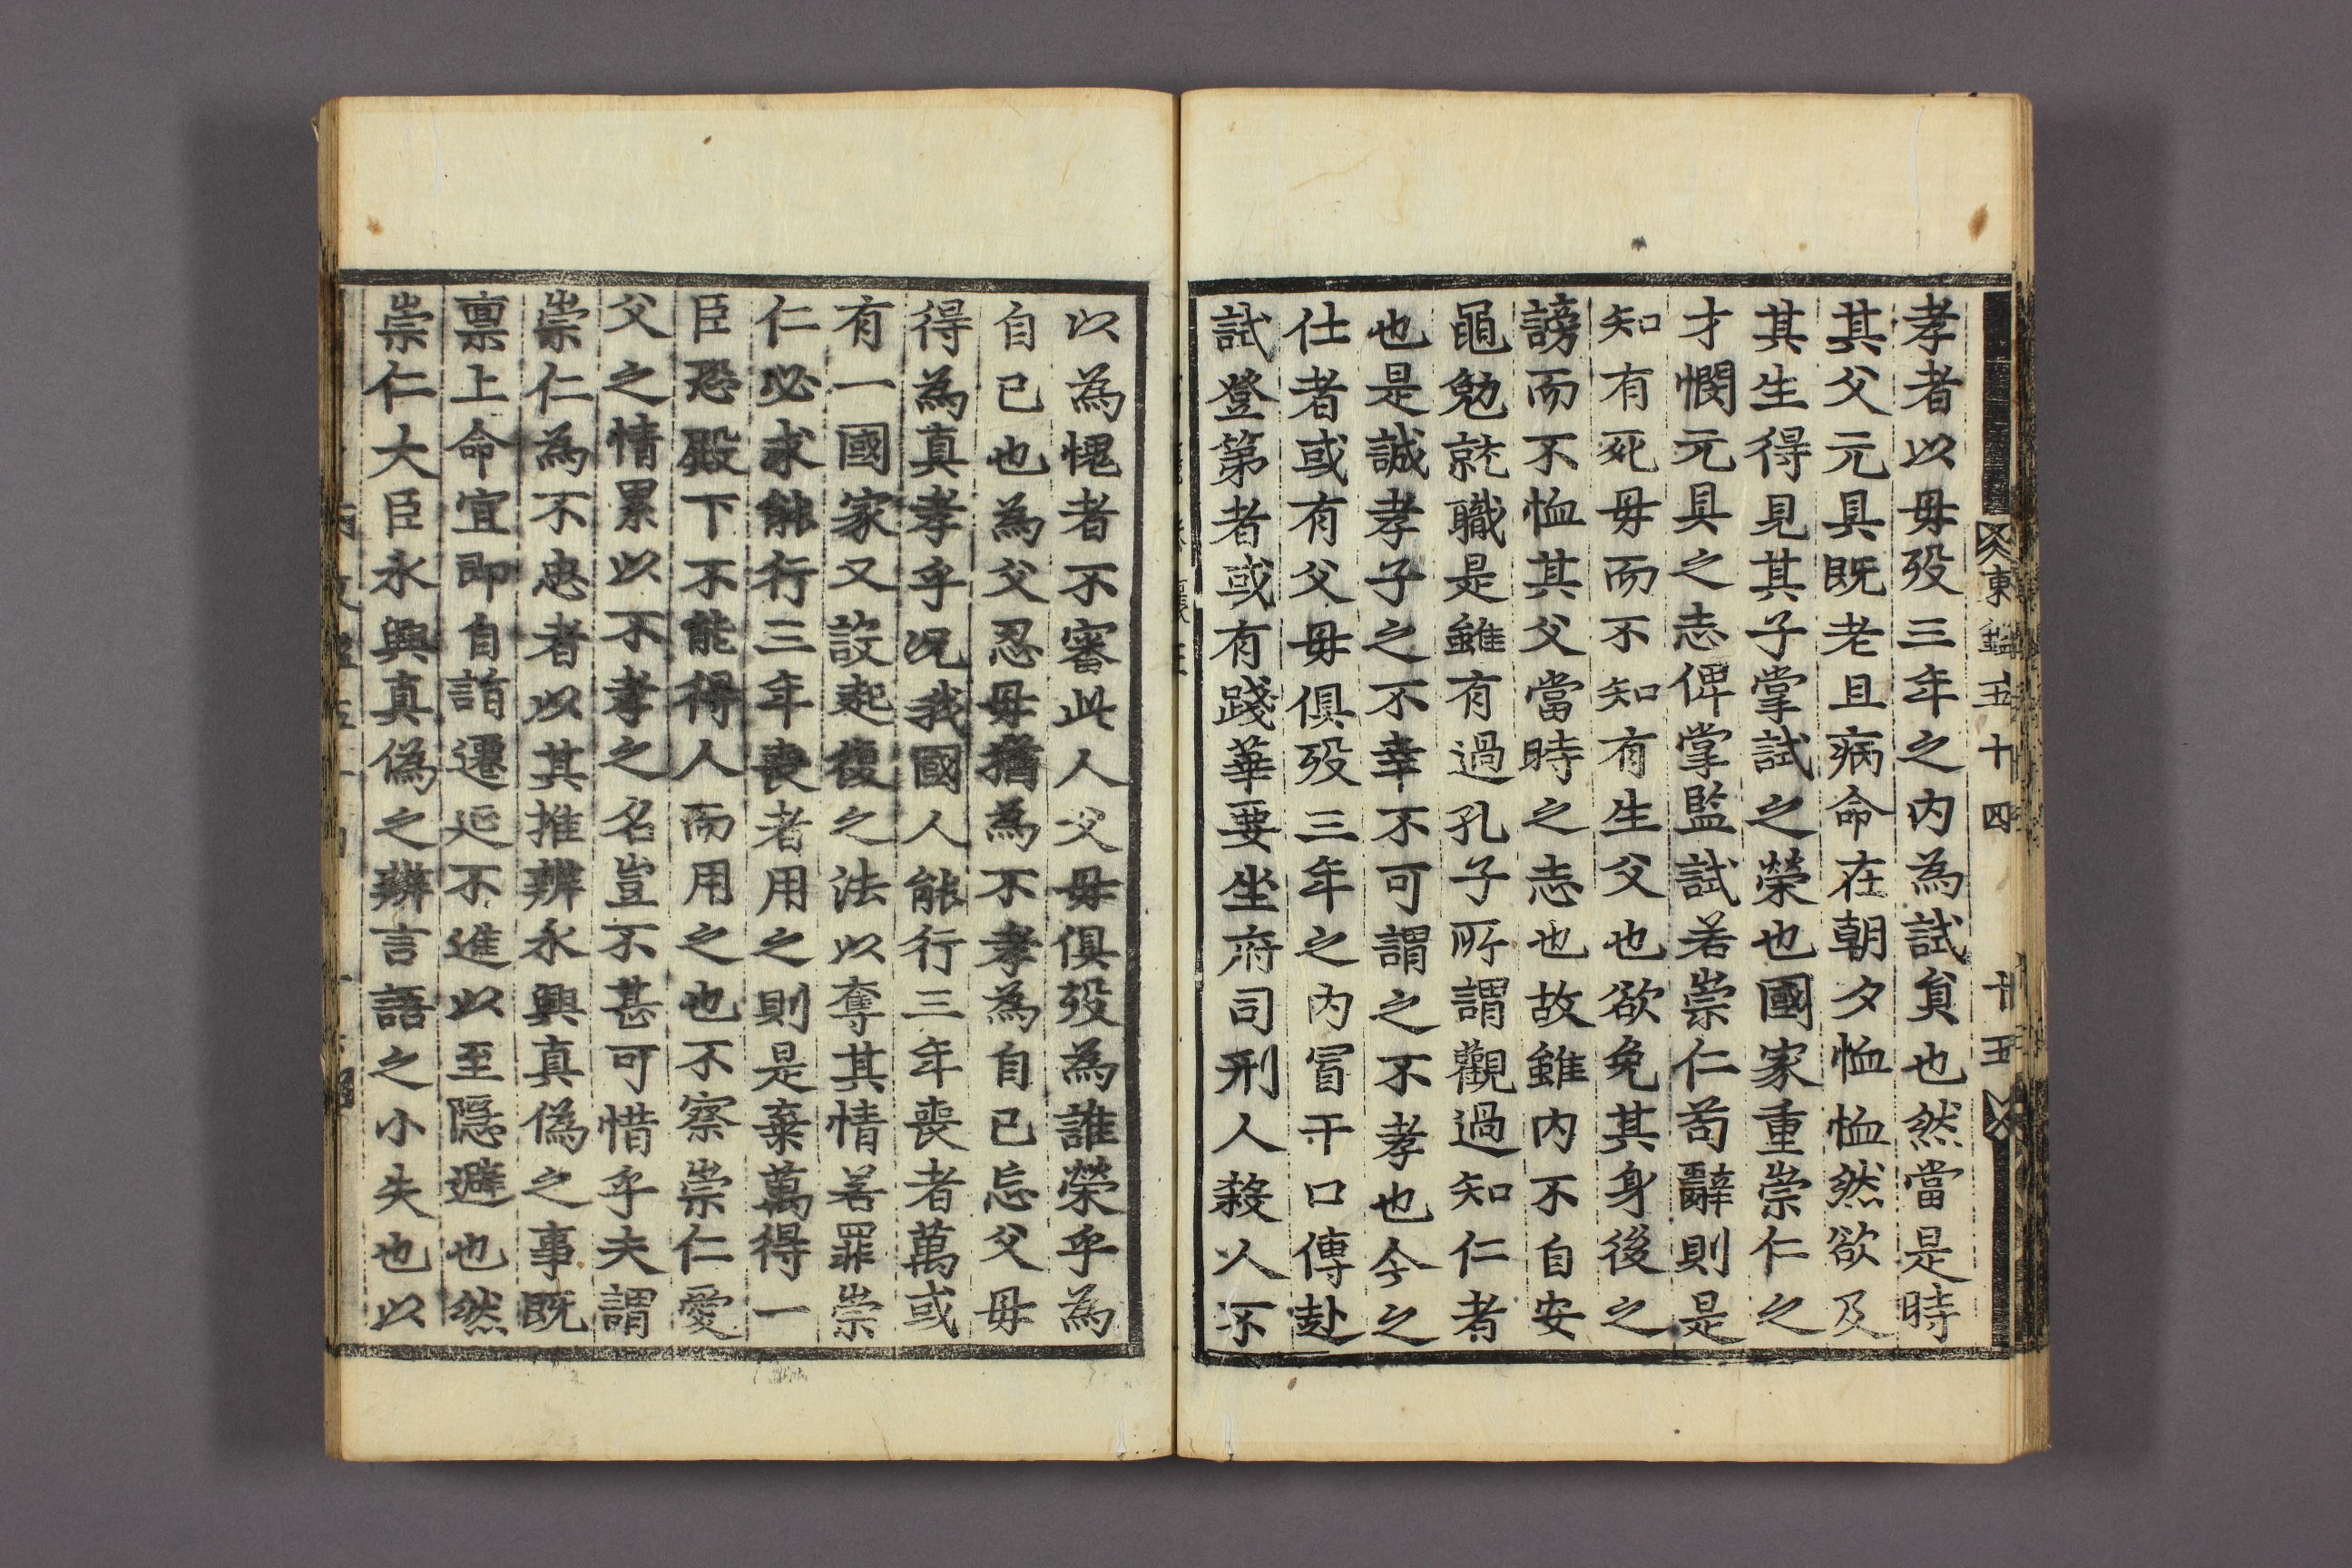 東鑑五十四 十五
孝者以毋歿三年之内為試貟也然當是時
其父元具既老且病命在朝夕恤恤然欲及
其生得見其子掌試之榮也國家重崇仁之
才憫元具之志俾掌監試若崇仁苟辭則是
知有死毋而不知有生父也欲免其身後之
謗而不恤其父當時之志也故雖内不自安
黽勉就職是雖有過孔子所謂觀過知仁者
也是誠孝子之不幸不可謂之不孝也今之
仕者或有父毋俱歿三年之内冒干口傳赴
試登第者或有踐華要坐府司刑人殺人不
以為愧者不審此人父毋俱歿為誰榮乎為
自已也為父忍毋猶為不孝為自已忘父毋
得為真孝乎况我國人能行三年喪者萬或
有一國家又設起復之法以奪其情若罪崇
仁必求能行三年喪者用之則是棄萬得一
臣恐殿下不能得人而用之也不察崇仁愛
父之情累以不孝之名豈不甚可惜乎夫謂
崇仁為不忠者以其推辨永興真偽之事既
禀上命宜即自詣遷延不進以至隠避也然
崇仁大臣永興真偽之辨言語之小失也以